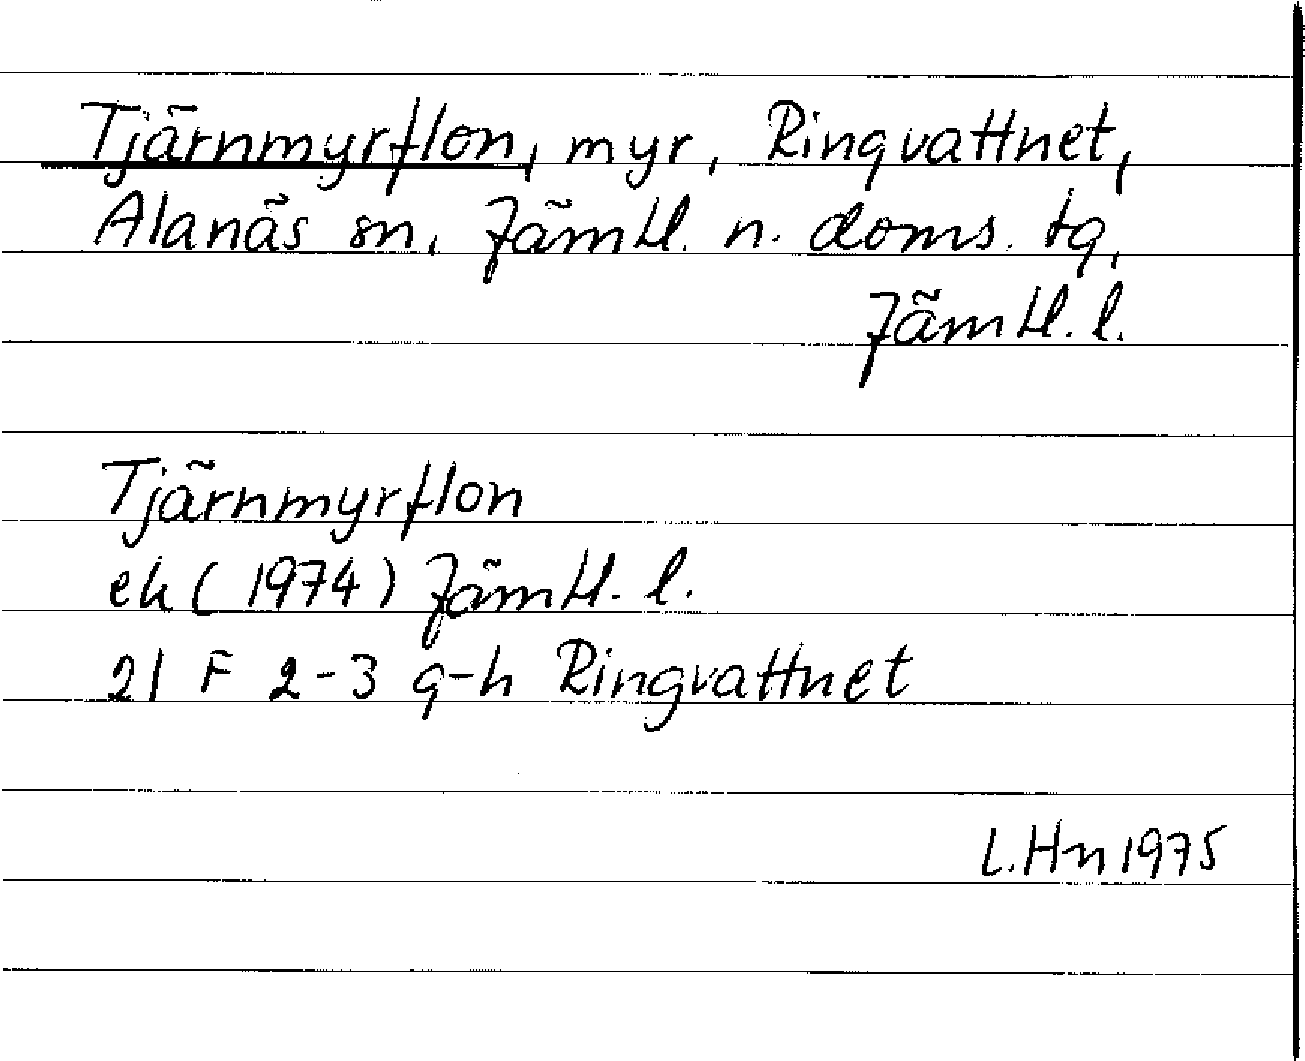 Tjärnmyrflon, myr, Ringvattnet,
Alanäs sn, Jämtl. n. doms. tg,
Jämtl. l.
Tjärnmyrflon
ek (1974) Jämtl. l.
21 F 2-3 g-h Ringvattnet
L. Hn 1975